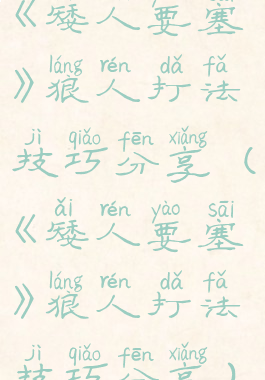 《矮人要塞
láng rén dǎ fǎ
》狼人打法
jì qiǎo fēn xiǎng
技巧分享（
ǎi rén yào sāi
《矮人要塞
láng rén dǎ fǎ
》狼人打法
jì qiǎo fēn xiǎng
技巧分享）